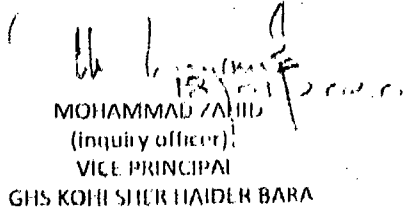 MOHAMMAD ZAHID
(inquiry officer)
VICE PRINCIPAL
GHS KOHI SHER HAIDER BARA